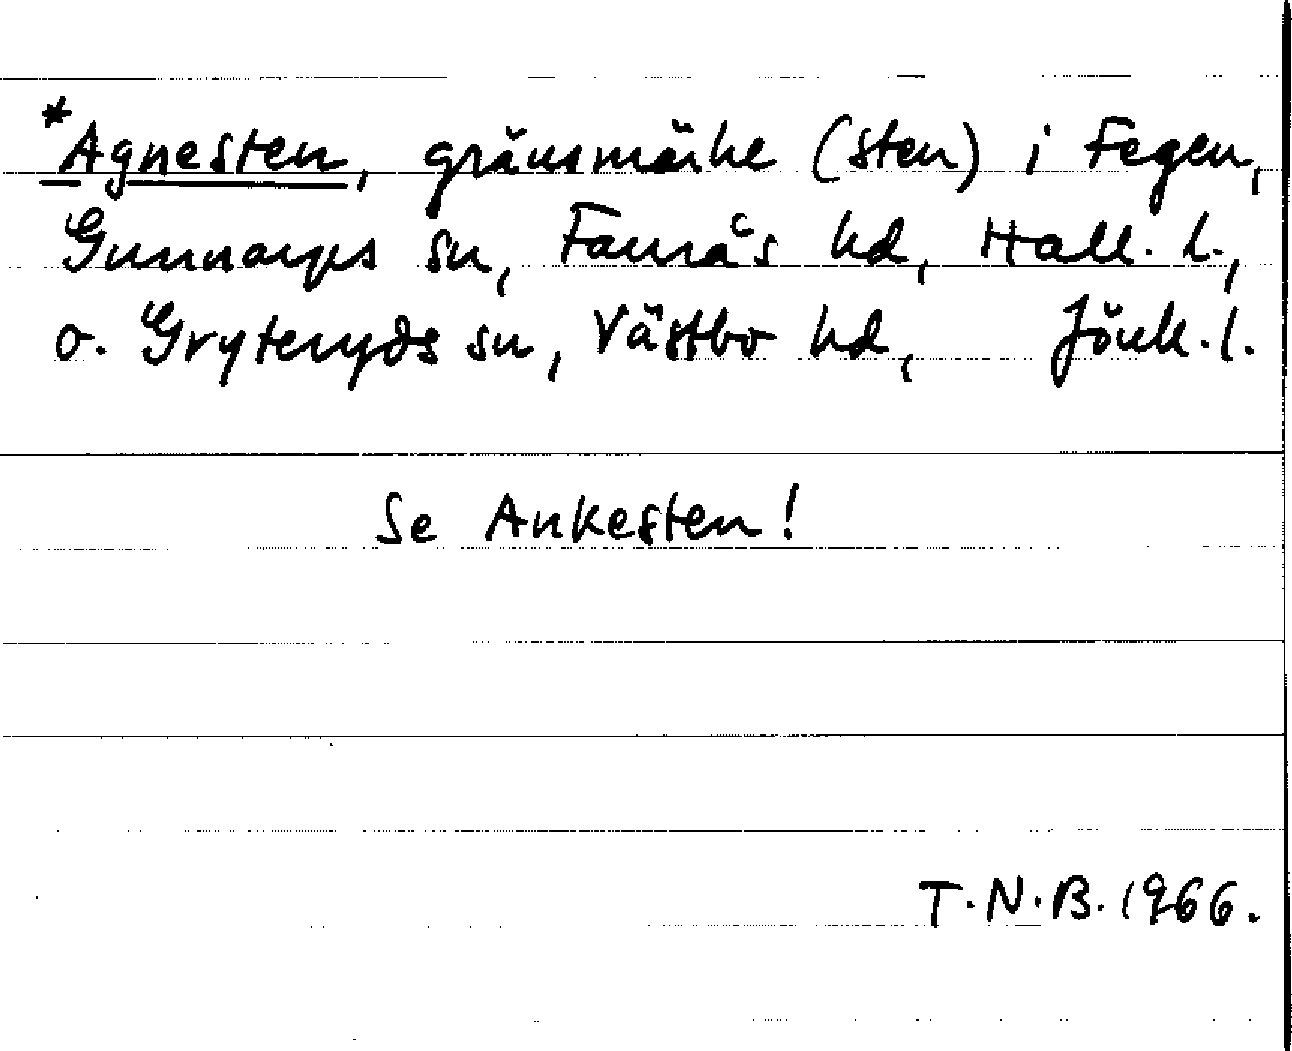 *Agnesten, gränsmärke (sten) i Fegen,
Gunnarps sn, Faurås hd, Hall. l.,
o. Gryteryds sn, Västbo hd, Jönk. l.
Se Ankesten!
T.N.B. 1966.